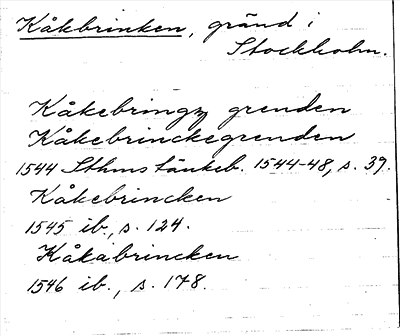 Kåkbrinken, gränd i
Stockholm.
Kåkebringz grenden
Kåkebrinckegrenden
1544 Sthms tänkeb. 1544-48, s. 39.
Kåkebrincken
1545 ib., s. 124.
Kåkabrincken
1546 ib., s. 178.